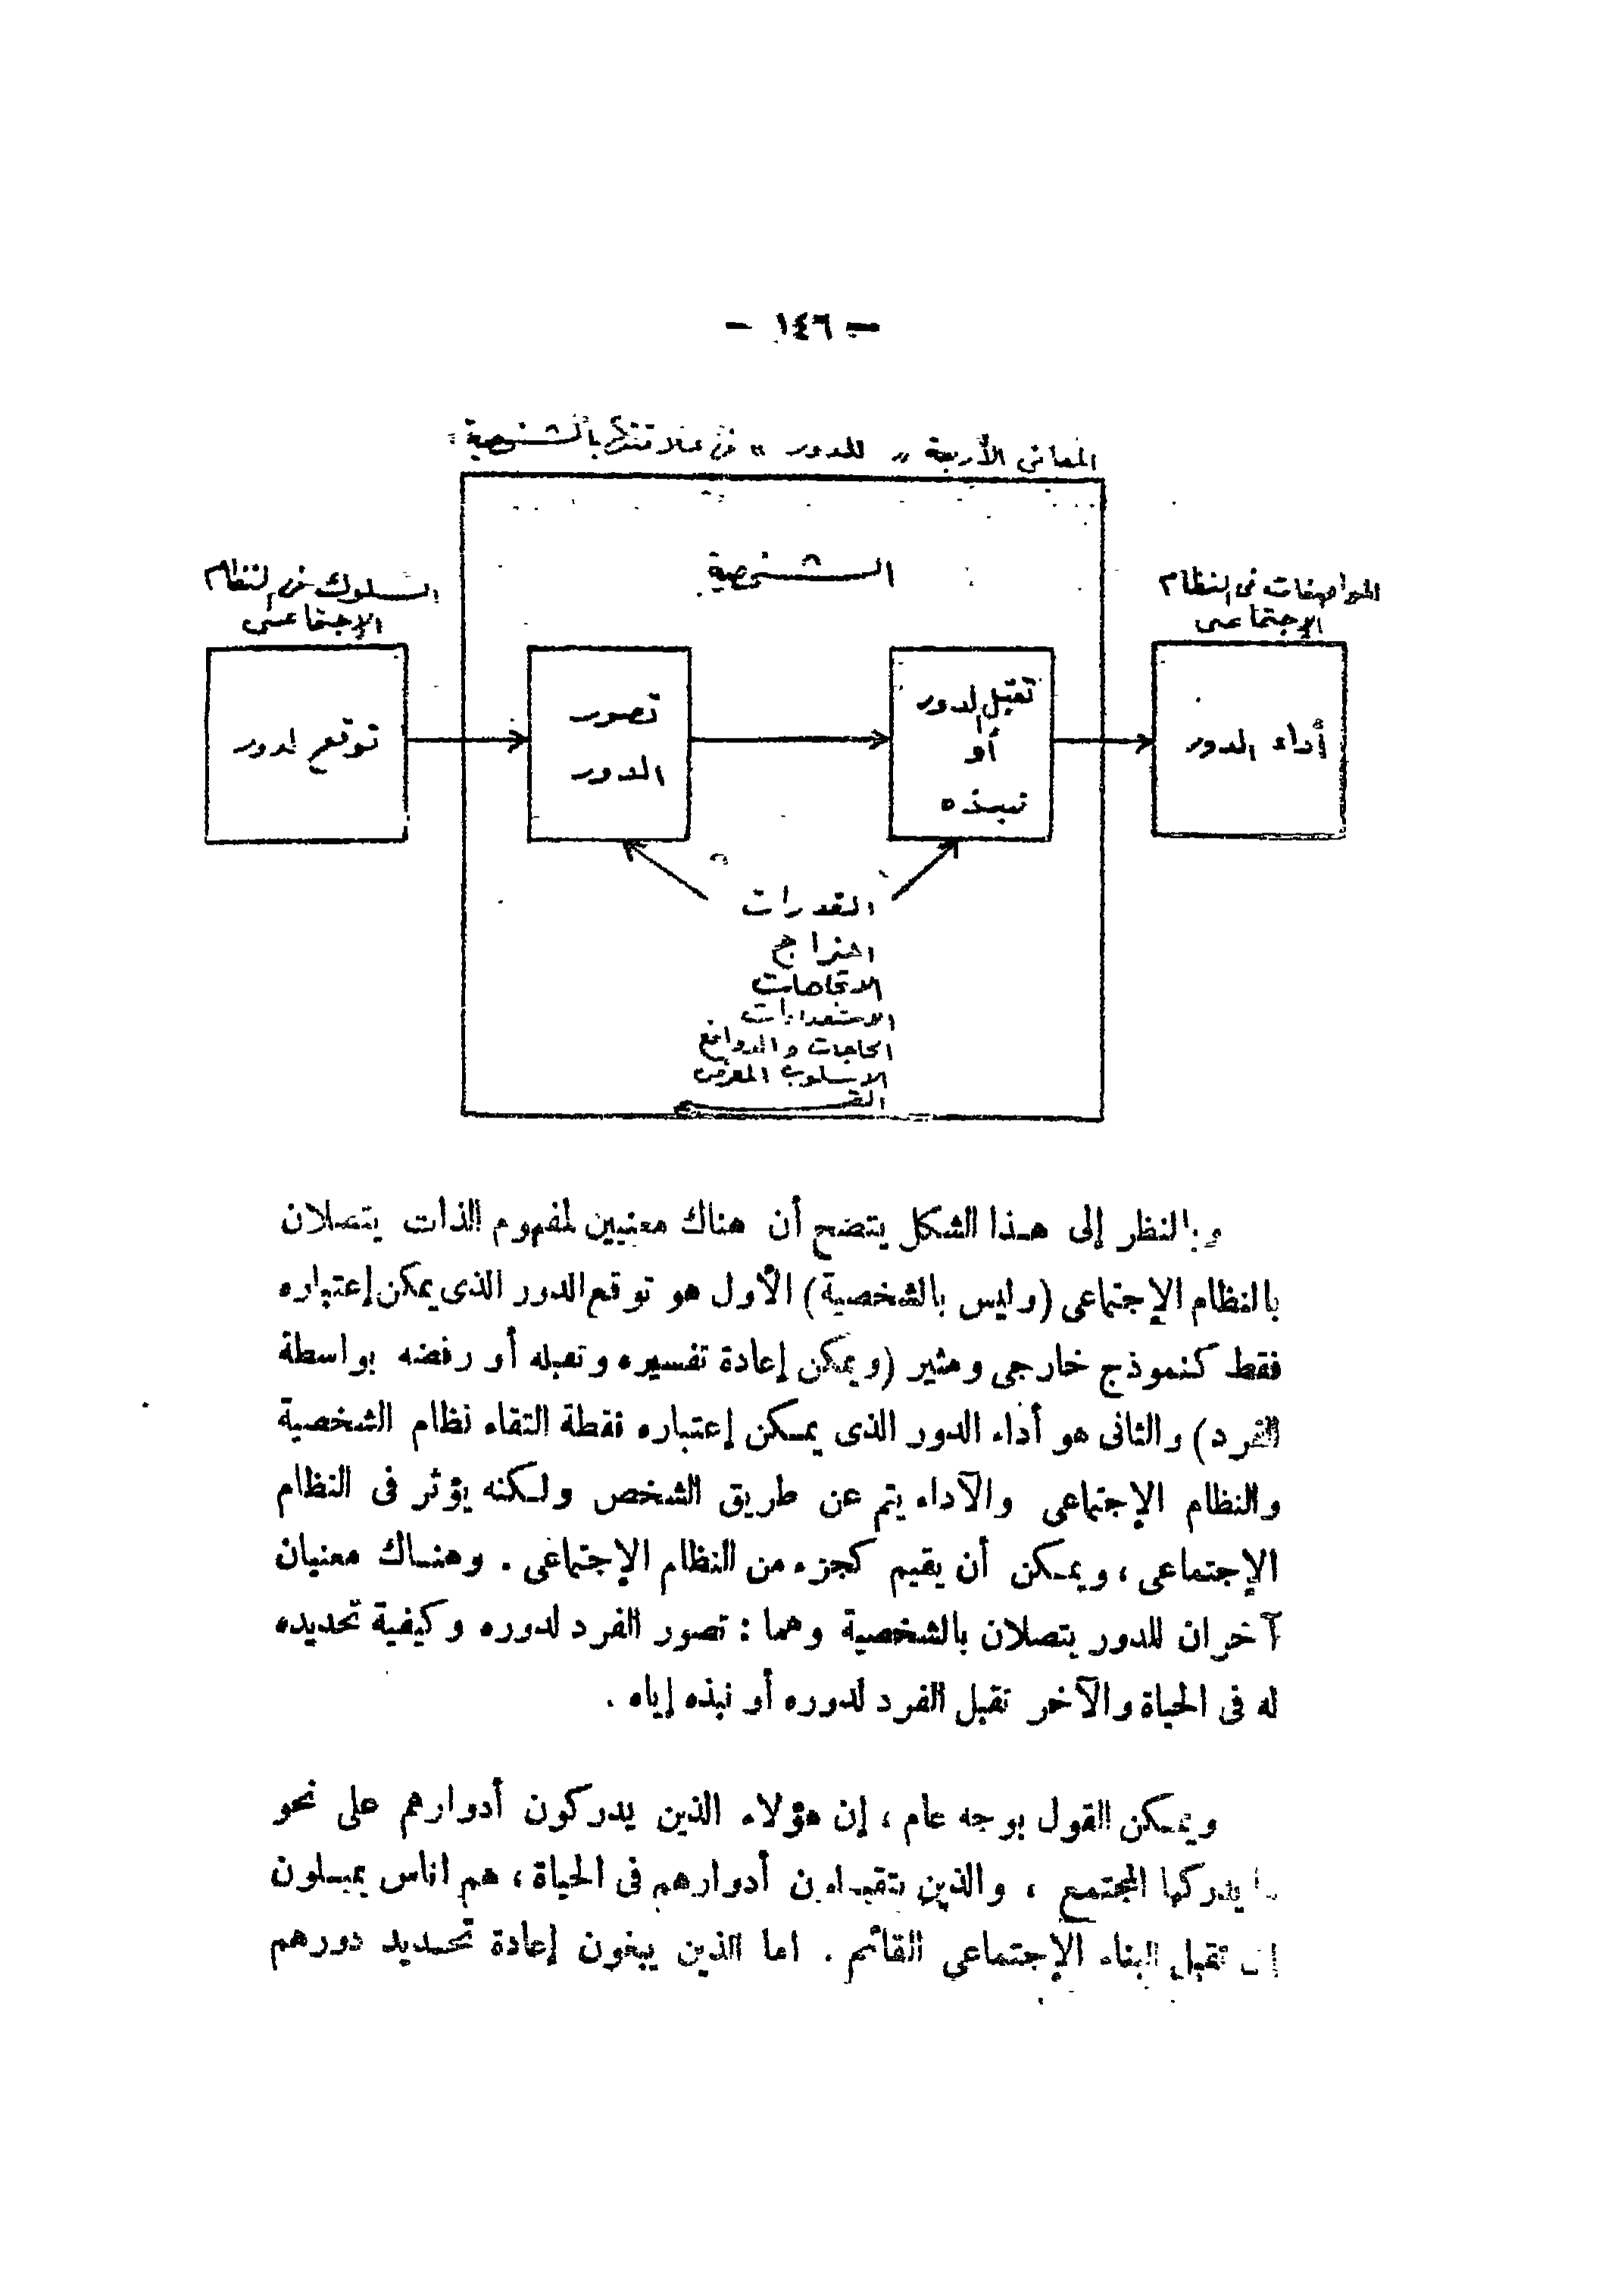 — ١٤٦ —
المعانى الأربعة " للدور " فى علاقتها بالشخصية :
الشخصية
المواصفات فى النظام
الإجتماعى
السلوك فى النظام
الإجتماعى
أداء الدور
تقبل الدور
أو
نبذه
تصور
الدور
توقع الدور
القدرات
المزاج
الاتجاهات
الاستعدادات
الحاجات والدوافع
الاسلوب المعرفى
القيم
وبالنظر إلى هذا الشكل يتضح أن هناك معنيين لمفهوم الذات يتصلان
بالنظام الإجتماعى (وليس بالشخصية) الأول هو توقع الدور الذى يمكن إعتباره
فقط كنموذج خارجى ومثير (ويمكن إعادة تفسيره وتقبله أو رفضه بواسطة
الفرد) والثانى هو أداء الدور الذى يمكن إعتباره نقطة التقاء نظام الشخصية
والنظام الإجتماعى والآداء يتم عن طريق الشخص ولكنه يؤثر فى النظام
الإجتماعى ، ويمكن أن يقيم كجزء من النظام الإجتماعى . وهناك معنيان
آخران للدور يتصلان بالشخصية وهما : تصور الفرد لدوره وكيفية تحديده
له فى الحياة والآخر تقبل الفرد لدوره أو نبذه إياه .
ويمكن القول بوجه عام ، إن هؤلاء الذين يدركون أدوارهم على نحو
ما يدركها المجتمع ، والذين يتقبلون أدوارهم فى الحياة ، هم اناس يميلون
الى تقبل البناء الإجتماعى القائم . اما الذين يبغون إعادة تحديد دورهم